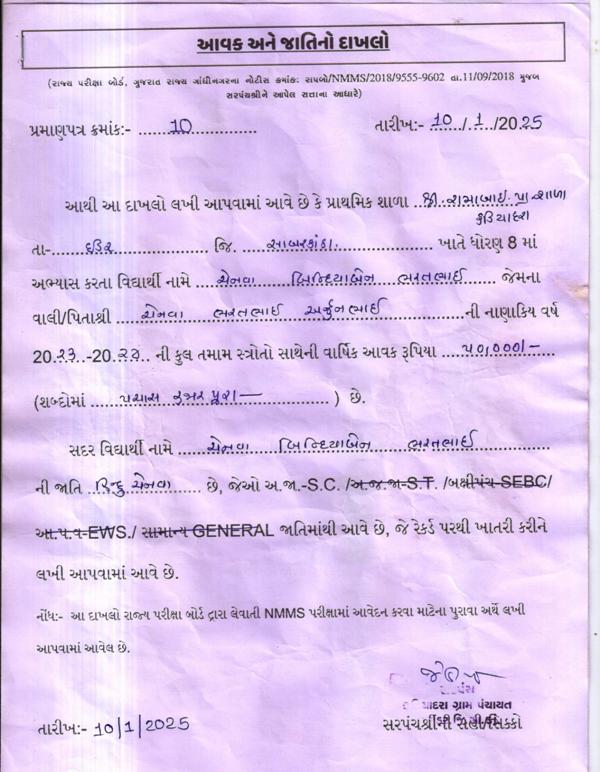 આવક અને જાતિનો દાખલો
(રાજ્ય પરીક્ષા બોર્ડ, ગુજરાત રાજ્ય ગાંધીનગરના નોટીસ ક્રમાંક: રાપબો/NMMS/2018/9555-9602 તા.11/09/2018 મુજબ
સરપંચશ્રીને આપેલ સત્તાના આધારે)
પ્રમાણપત્ર ક્રમાંક:- 10 તારીખ:- 10/1/2025
આથી આ દાખલો લખી આપવામાં આવે છે કે પ્રાથમિક શાળા શ્રી. રામાબાઈ પ્રા શાળા
કુડિયાદરા
તા- ઇડર જિ. સાબરકાંઠા ખાતે ધોરણ 8 માં
અભ્યાસ કરતા વિદ્યાર્થી નામે ચેનવા બિન્દિયાબેન ભરતભાઈ જેમના
વાલી/પિતાશ્રી ચેનવા ભરતભાઈ અર્જુનભાઈ ની નાણાકિય વર્ષ
20૨૩-20૨૪ ની કુલ તમામ સ્ત્રોતો સાથેની વાર્ષિક આવક રૂપિયા ૫૦,૦૦૦/-
(શબ્દોમાં પચાસ હજાર પૂરા— ) છે.
સદર વિદ્યાર્થી નામે ચેનવા બિન્દિયાબેન ભરતભાઈ
ની જાતિ હિન્દુ ચેનવા છે, જેઓ અ.જા.-S.C. /અ.જ.જા-S.T. /બક્ષીપંચ-SEBC/
આ.પ.વ-EWS./ સામાન્ય GENERAL જાતિમાંથી આવે છે, જે રેકર્ડ પરથી ખાતરી કરીને
લખી આપવામાં આવે છે.
નોંધ:- આ દાખલો રાજ્ય પરીક્ષા બોર્ડ દ્વારા લેવાતી NMMS પરીક્ષામાં આવેદન કરવા માટેના પુરાવા અર્થે લખી
આપવામાં આવેલ છે.
સરપંચ
યાદરા ગ્રામ પંચાયત
તારીખ:- 10/1/2025 સરપંચશ્રીની સહી/સિક્કો